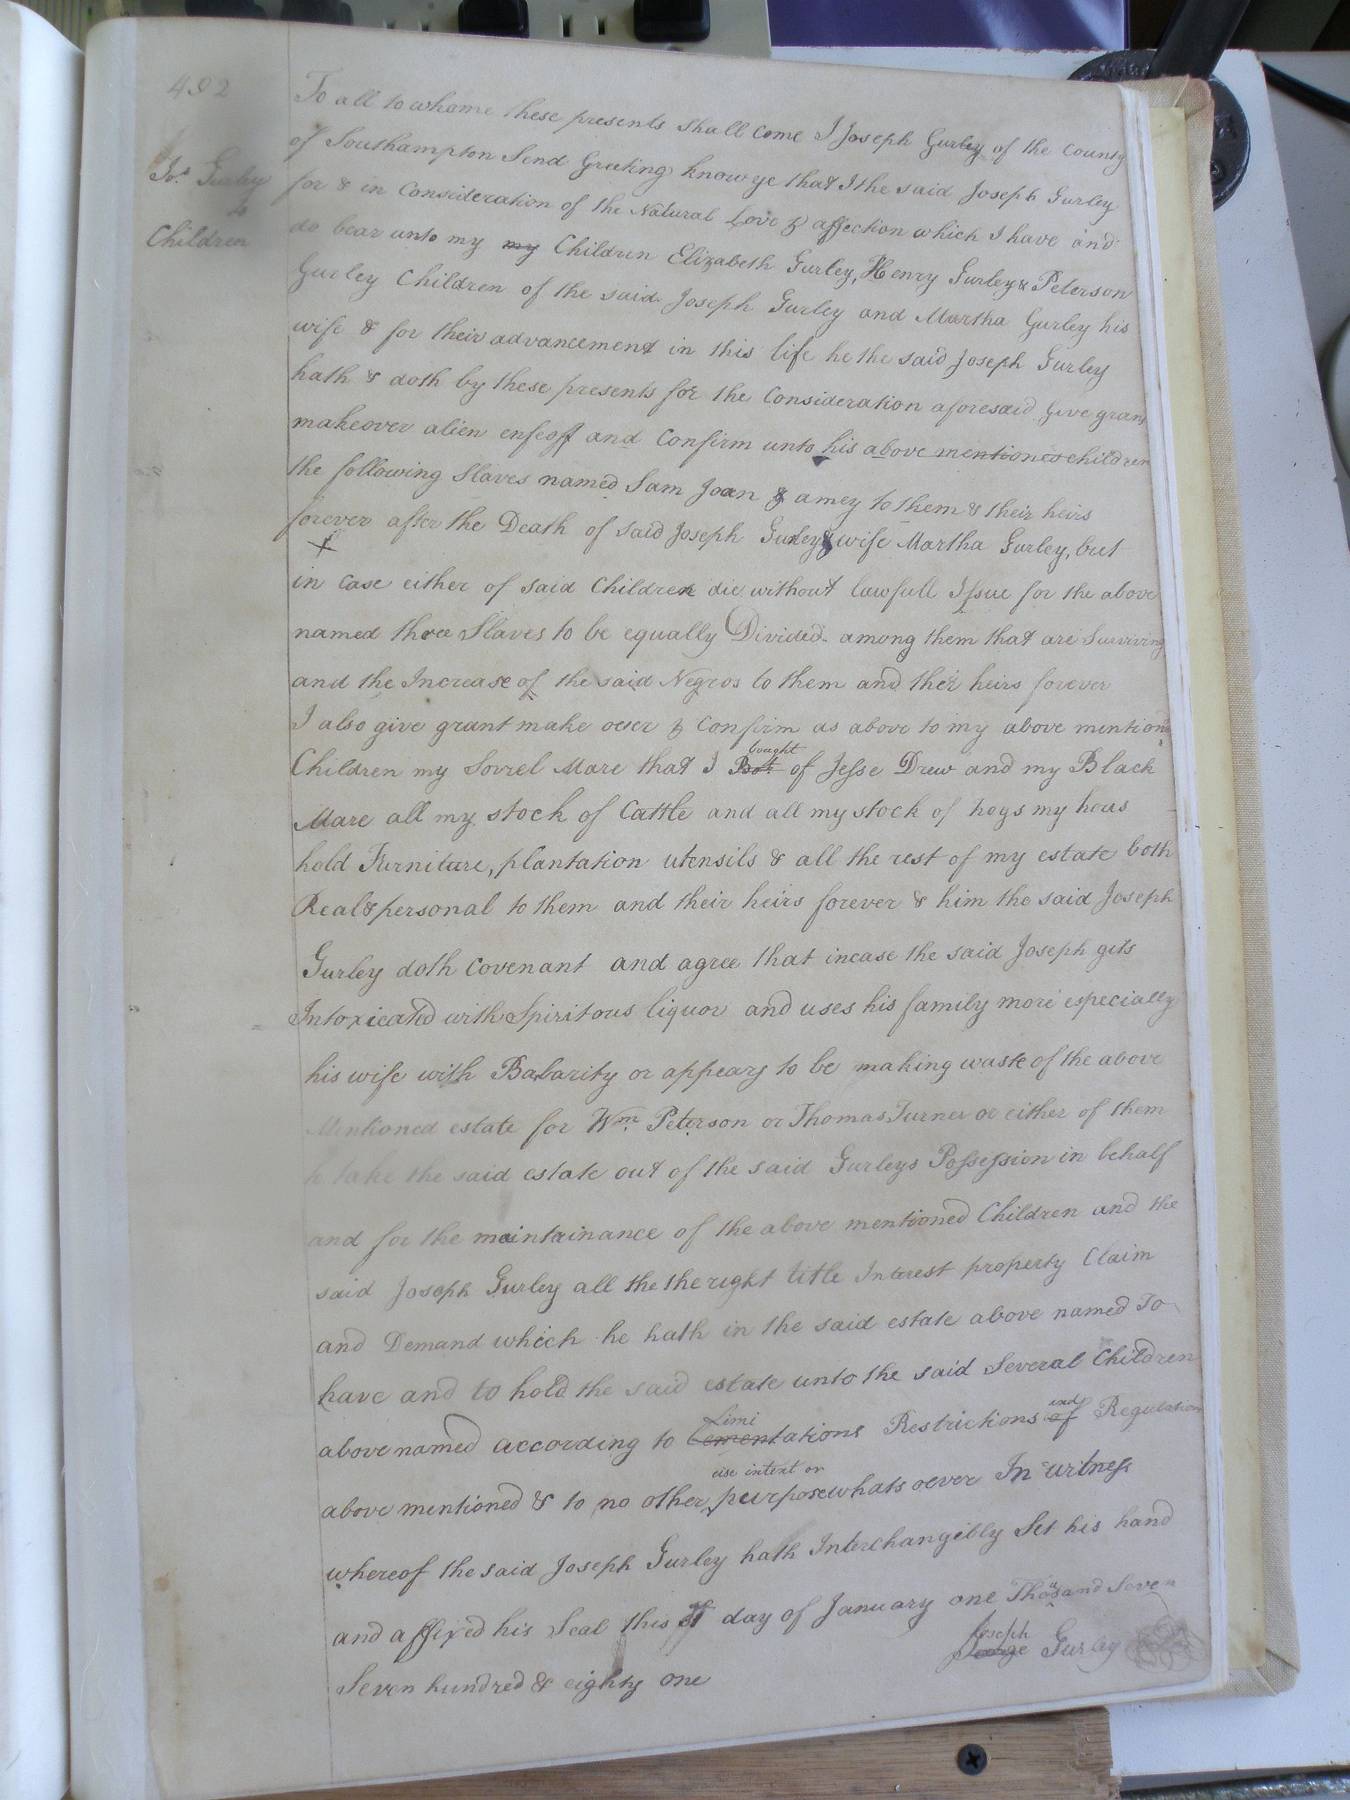 492
Jos. Gurley
to
Children
To all to whome these presents shall come I Joseph Gurley of the County
of Southampton Send Greeting know ye that I the said Joseph Gurley
for & in Consideration of the Natural Love & affection which I have and
do bear unto my my Children Elizabeth Gurley, Henry Gurley & Peterson
Gurley Children of the said Joseph Gurley and Martha Gurley his
wife & for their advancement in this life he the said Joseph Gurley
hath & doth by these presents for the Consideration aforesaid Give grant
makeover alien enfeoff and Confirm unto his above mentioned children
the following Slaves named Sam Joan & amey to them & their heirs
forever after the Death of said Joseph Gurley & wife Martha Gurley, but
in case either of said Children die without lawfull Issue for the above
named three Slaves to be equally Divided among them that are Surviving
and the Increase of the said Negros to them and their heirs forever
I also give grant make over & Confirm as above to my above mention'd
Children my Sorrel Mare that I Bot bought of Jesse Drew and my Black
Mare all my stock of Cattle and all my stock of hogs my hous
hold Furniture, plantation utensils & all the rest of my estate both
Real & personal to them and their heirs forever & him the said Joseph
Gurley doth Covenant and agree that incase the said Joseph gits
Intoxicated with Spiritous liquor and uses his family more especially
his wife with Babarity or appears to be making waste of the above
Mentioned estate for Wm. Peterson or Thomas Turner or either of them
take the said estate out of the said Gurleys Possession in behalf
and for the maintainance of the above mentioned Children and the
said Joseph Gurley all the the right title Interest property Claim
and Demand which he hath in the said estate above named To
have and to hold the said estate unto the said Several Children
above named according to Limitations Restrictions of and Regulation
above mentioned & to no other use intent or purpose whatsoever In witness
whereof the said Joseph Gurley hath Interchangibly Set his hand
and affixed his Seal this day of January one Thousand Seven
Seven hundred & eighty one
Joseph Gurley